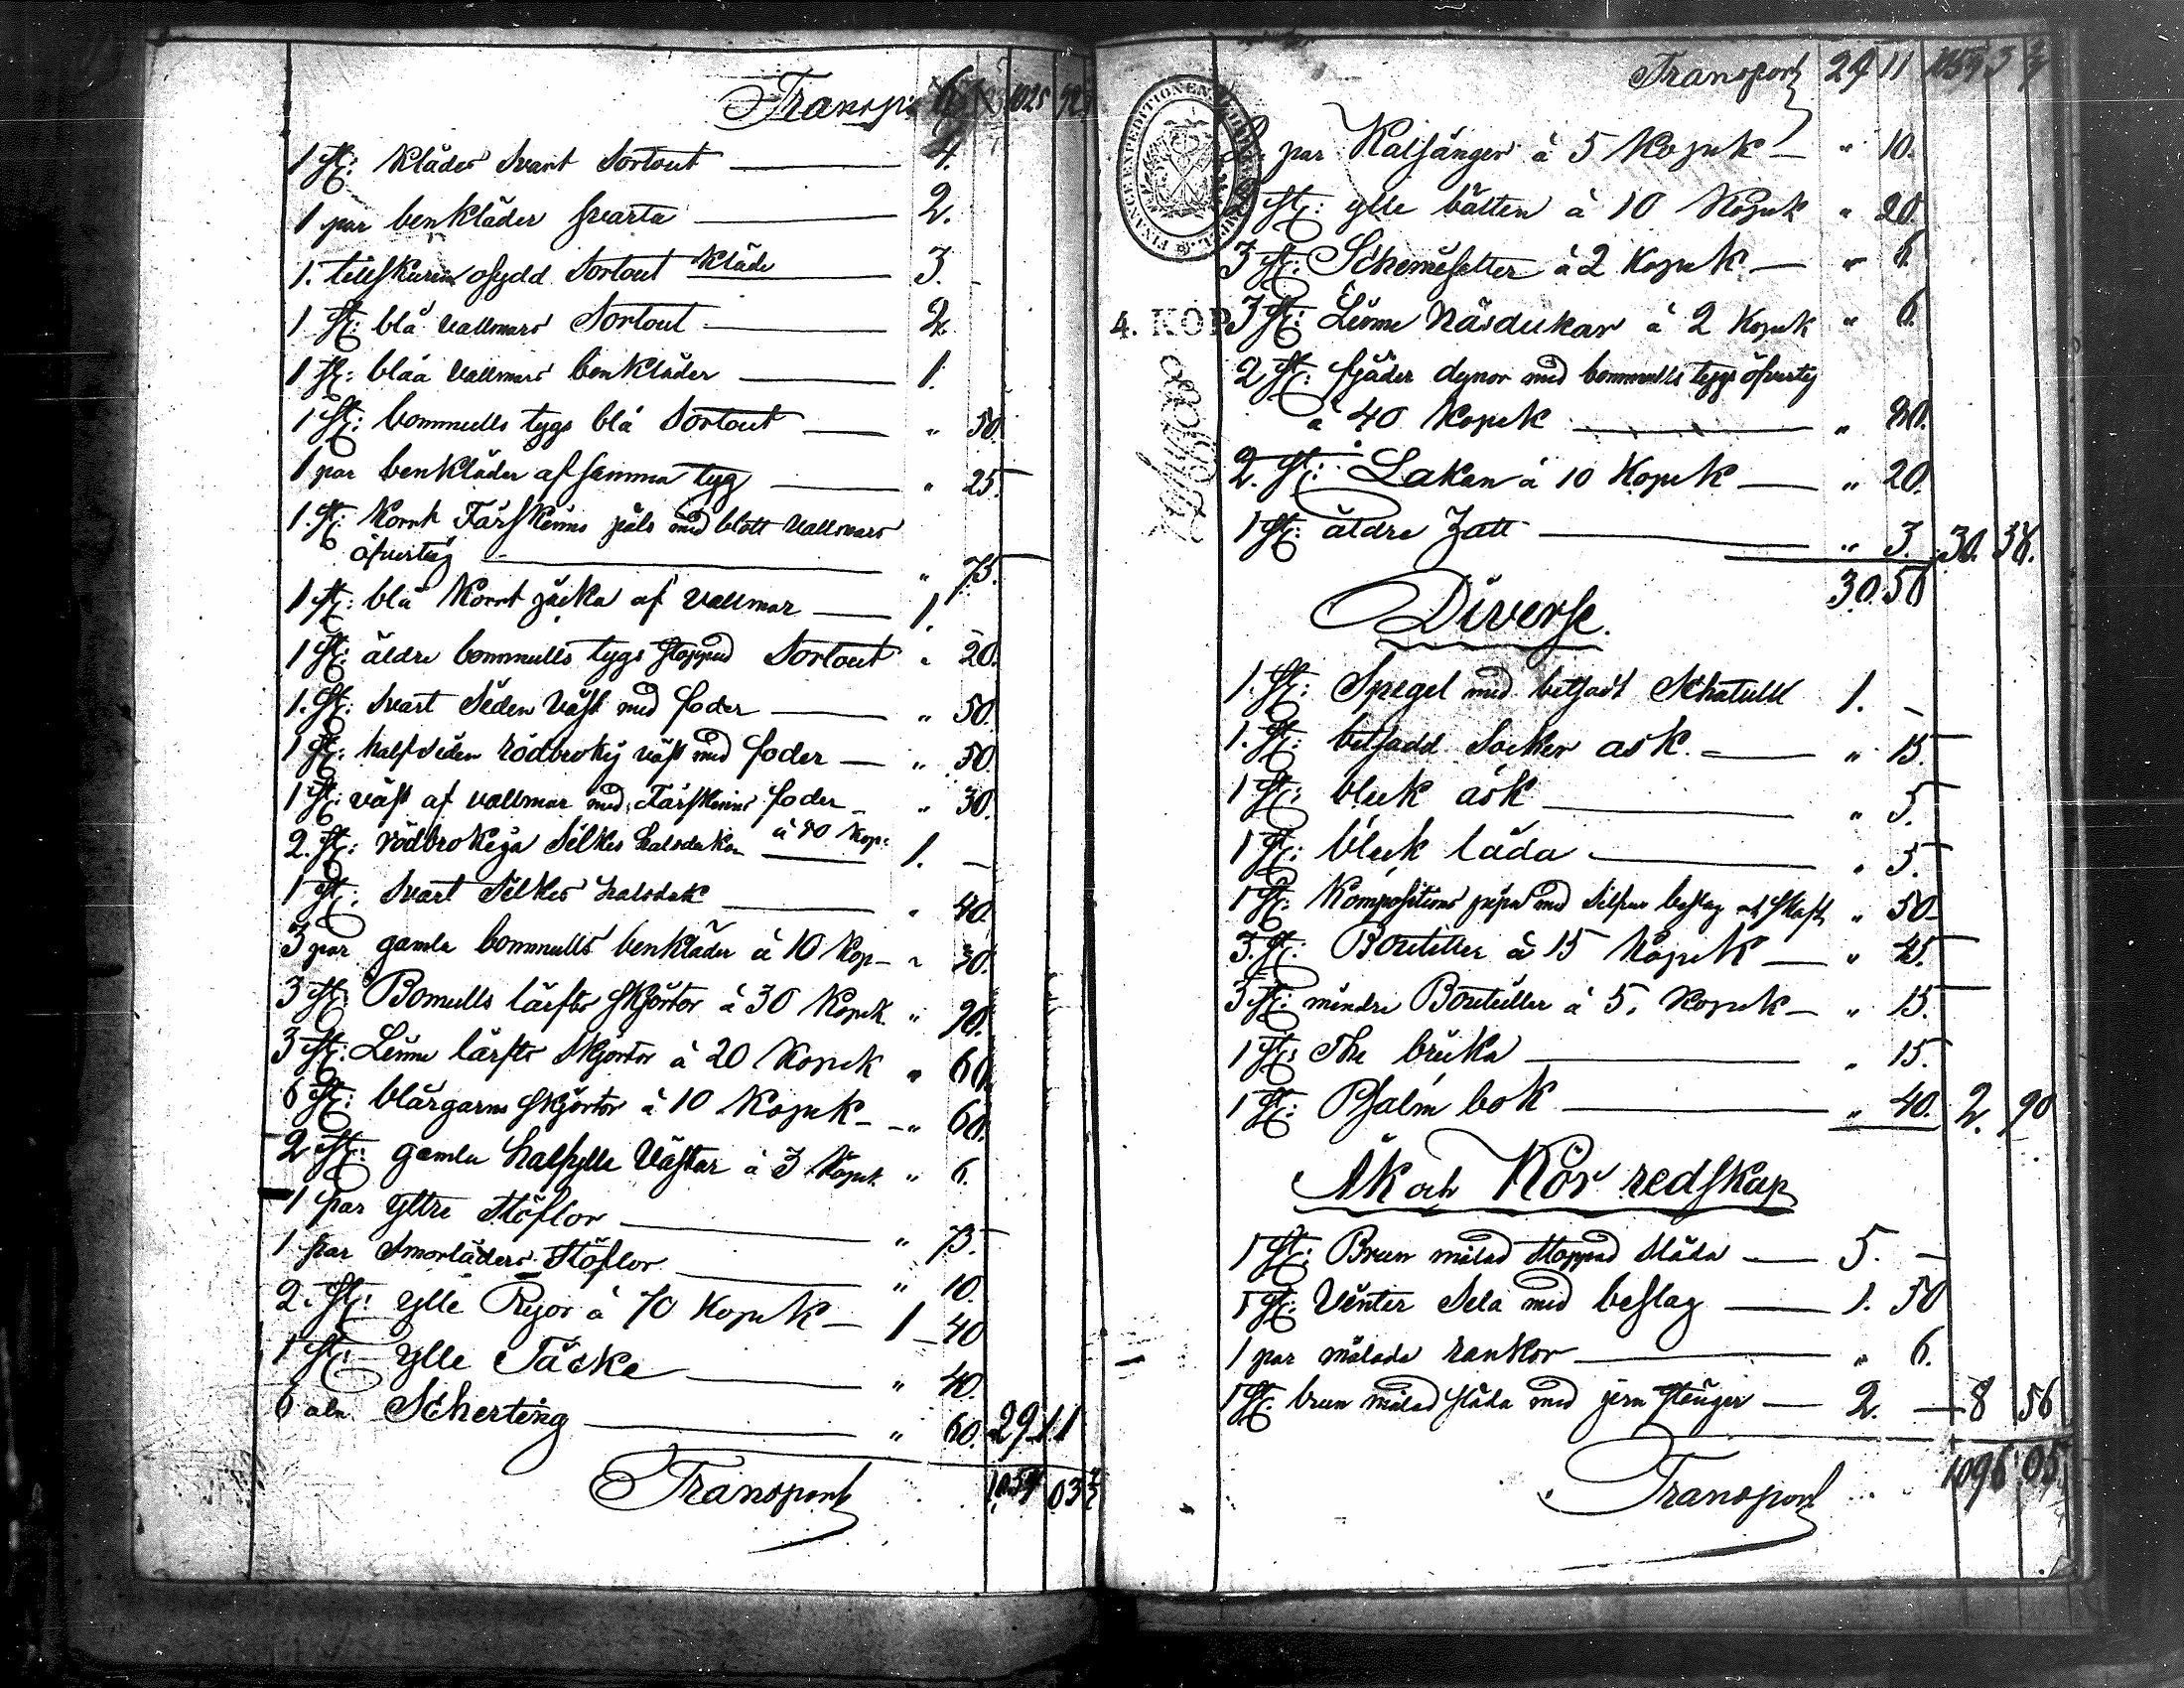 Transp: 1025 92
1 st: Klädes Svart Sortout 4.
1 par benkläder svarta 2.
1. tillskuren osydd Sortout kläde 3. -
1 st: blå vallmars Sortout 2.
1 st: blåa vallmars benkläder 1.
1 st: bommulls tygs blå Sortout " 50.
1 par benkläder af samma tyg " 25.
1. st: Kort Fårskinns päls med blått vallmars
öfvertyg " 75.
1 st: blå Kort jäcka af vallmar 1.
1 st: äldre bommulls tygs stoppad Sortout " 20.
1. st: Svart Siden väst med foder " 50.
1 st: half siden rödbrokig väst med foder " 50.
1 st: väst af vallmar med Fårskinns foder " 30.
2. st: rödbrokiga Silkes halsdukar à 50 Kop: 1. -
1 st: Svart Silkes halsduk " 40.
3 par gamla bommulls benkläder à 10 Kop " 30.
3 st: Bomulls lärfts skjortor à 30 Kopek " 90.
3 st: Linne lärfts skjortor à 20 Kopek " 60.
6 st: blårgarns skjortor à 10 Kopek " 60.
2 st: gamla halfylle Västar à 3 Kopek " 6.
1 par yttre Stöflor " 75.
1 par Smorläders Stöflor " 10.
2. st: ylle Ryor à 70 Kopek 1 40
1 st: ylle Täcke " 40.
6 aln. Scherting " 60. 29 11
Transport 1054 03
Transport 29 11 1054 3
FINANCE EXPEDITIONEN
par Kalsånger à 5 Kopek " 10.
st: ylle bälten à 10 Kopek " 20.
3 st: Schemisetter à 2 Kopek " 6.
4. KOP.
3 st: Linne Näsdukar à 2 Kopek " 6.
2 st: fjäder dynor med bommulls tygs öfvertyg
à 40 Kopek " 80.
2. st: Lakan à 10 Kopek " 20.
1 st: äldre Hatt " 3. 30. 38.
30.56
Diverse.
1. st: Spegel med betsadt Schatull 1. -
1. st: betsadd Socker ask. " 15.
1 st: bleck ask " 5.
1 st: bleck låda " 5.
1 st: Kompositions pipa med Silfver beslag och skaft " 50
3. st: Boutiller à 15 Kopek " 45.
3 st: mindre Bouteiller à 5. Kopek " 15.
1 st: The bricka " 15.
1 st: Psalm bok " 40. 2. 90
Åk och Kör redskap
1 st: Brun målad stoppad släda 5. -
1 st: Vinter Sela med beslag 1. 50
1 par målade rankor " 6.
1 st: brun målad släda med jern stänger 2. - 8 56
Transport 1096 05